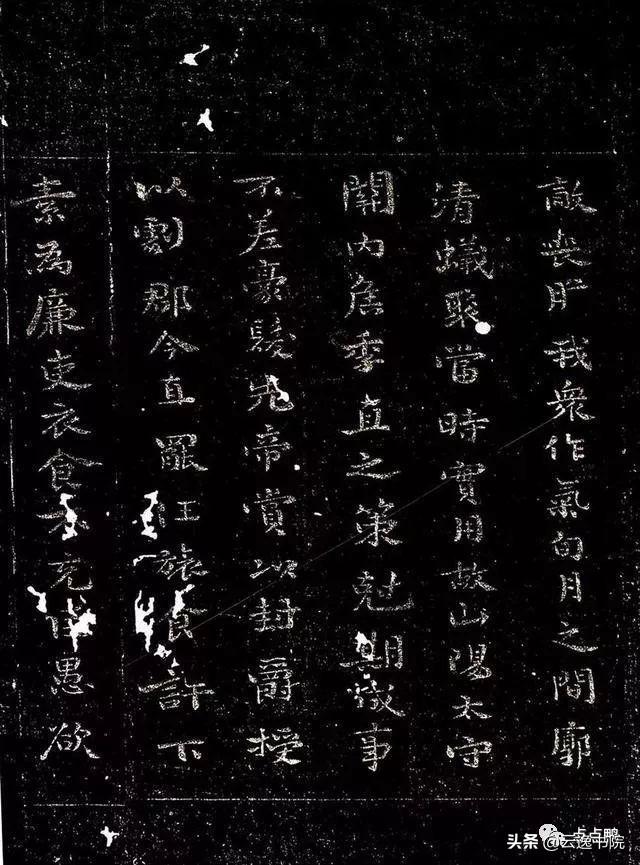 敵喪膽我衆作氣旬月之間廓
清蟻聚當時實用故山陽太守
關內侯季直之策尅期成事
不差豪髮先帝賞以封爵授
以劇郡今直罷任旅食許下
素爲廉吏衣食不充臣愚欲
点点鹏
头条 @云逸书院